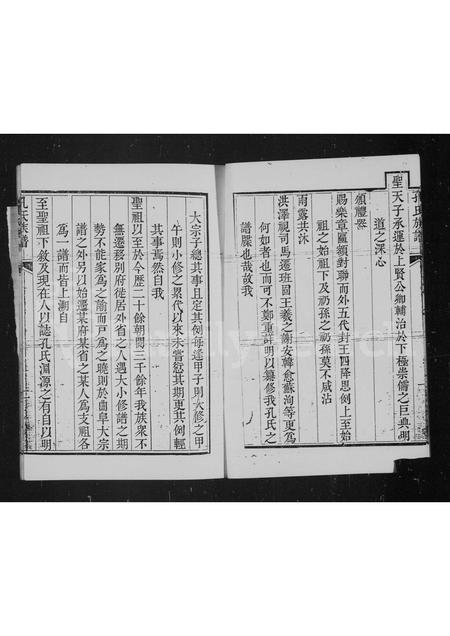 聖天子承運於上賢公卿輔治於下極崇儒之巨典明
道之深心
頒禮器
賜樂章匾額對聯而外五代封王四降恩綸上至始
祖之始祖下及礽孫之礽孫莫不咸沾
雨露共沐
洪澤視司馬遷班固王羲之謝安韓愈蘇洵等更為
何如者也而可不鄭重詳明以纂修我孔氏之
譜牒也哉故我
孔氏族譜
大宗子總其事且定其例每逢甲子則大修之甲
午則小修之累代以來未嘗愆其期更其例輕
其事焉然自我
聖祖以至於今歷二十餘朝閱三千餘年我族衆不
無遷移別府徙居外省之人遇大小修譜之期
勢不能家為之諭而戶為之曉則於曲阜大宗
譜之外另以始遷某府某省之某人為支祖各
為一譜而皆上溯自
至聖祖下敘及現在人以誌孔氏淵源之有自以明
孔氏族譜